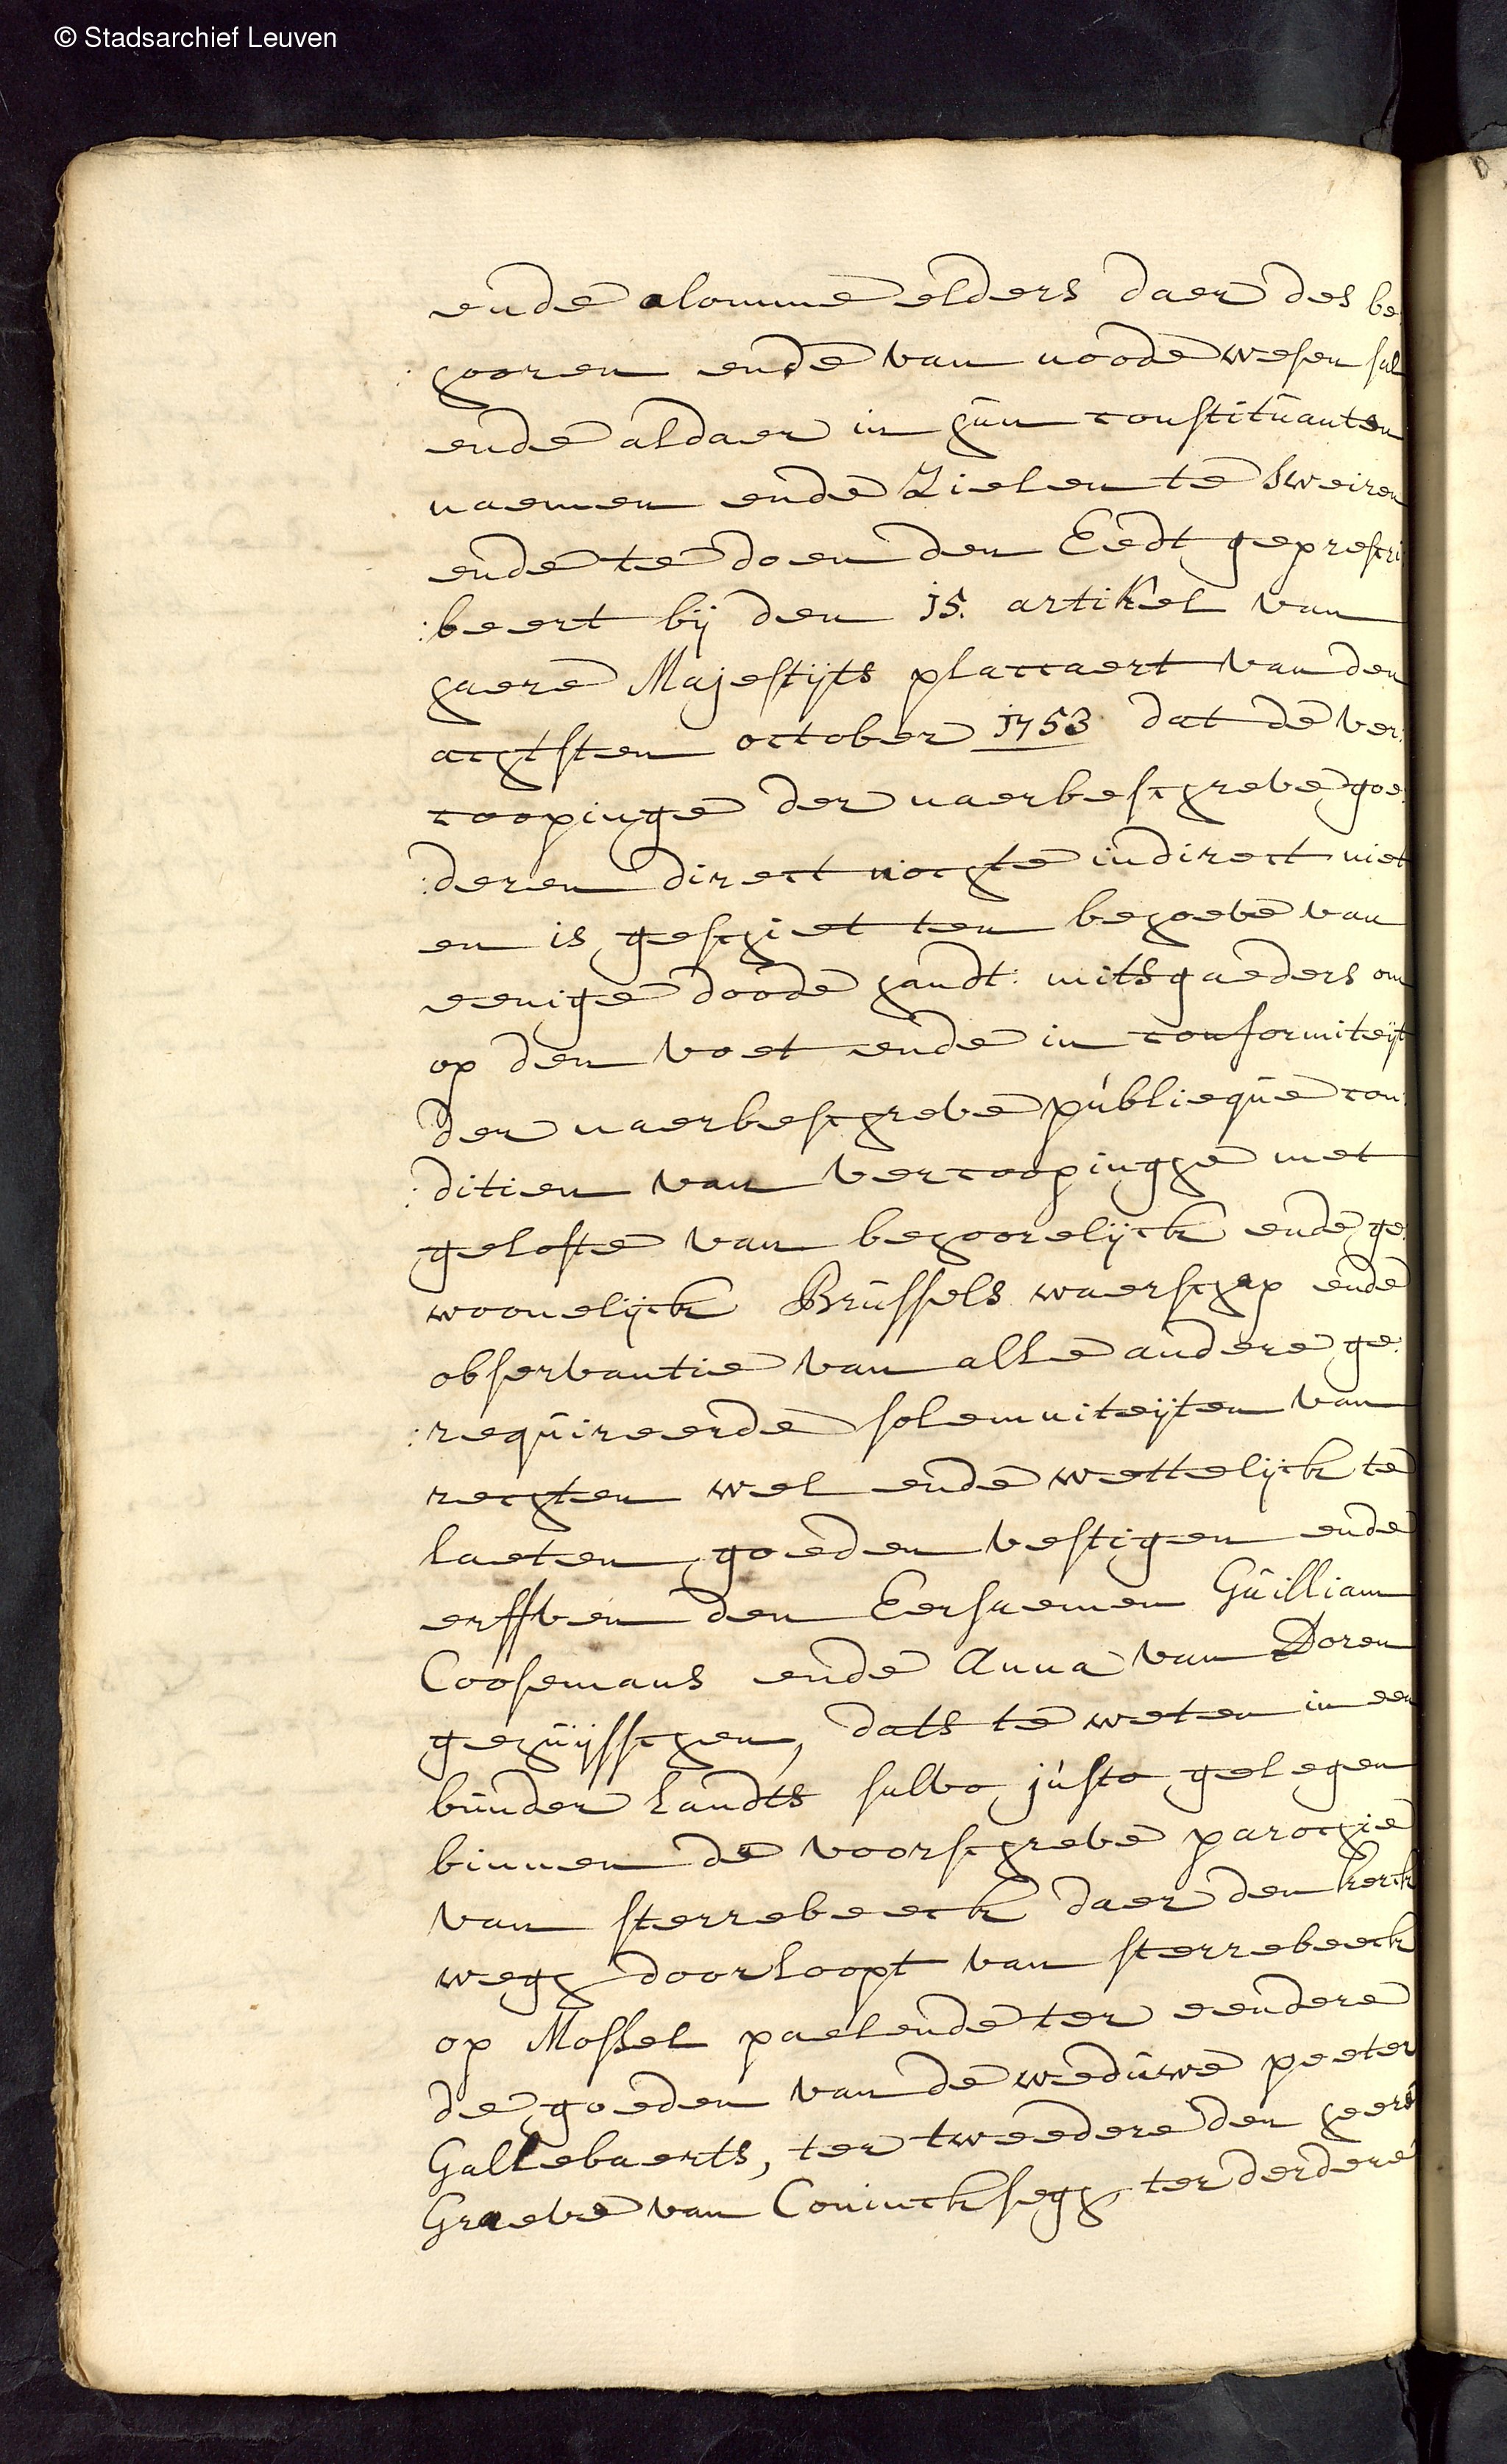 © Stadsarchief Leuven
ende alomme elders daer des be:
:hooren ende van noode wesen sal
ende aldaer in hun constituanten
naemen ende Zielen te sweiren
ende te doen den Eedt geprescri
:beert bij den 15. artikel van
haere Majestijts placcaert van den
achtsten october 1753 dat de ver:
coopinge der naerbeschreve goe:
:deren direct nochte indirect niet
en is geschiet ten behoeve van
eenige doode handt: mitsgaeders om
op den voet ende in conformiteijt
der naerbeschreve publieque con:
:ditien van vercoopingge met
gelofte van behoorelijck ende ge:
woonelijck Brussels waerschap ende
observantie van alle andere ge:
:requireerde solemniteijten van
rechten wel ende wettelijck te
laeten goeden vestigen ende
erffven den Eersaemen Guilliam
Coosemans ende Anna van Doren
gehuijsschen, dats te weten in een
bunder Landts salvo justo gelegen
binnen de voorschreve parochie
van sterrebeeck daer den kerck
wegh doorloopt van sterrebeeck
op Mossel paelende ter eendere
de goeden van de weduwe peeter
Gallebaerts, ter tweedere den heere
Graeve van Coninckseggh ter derdere